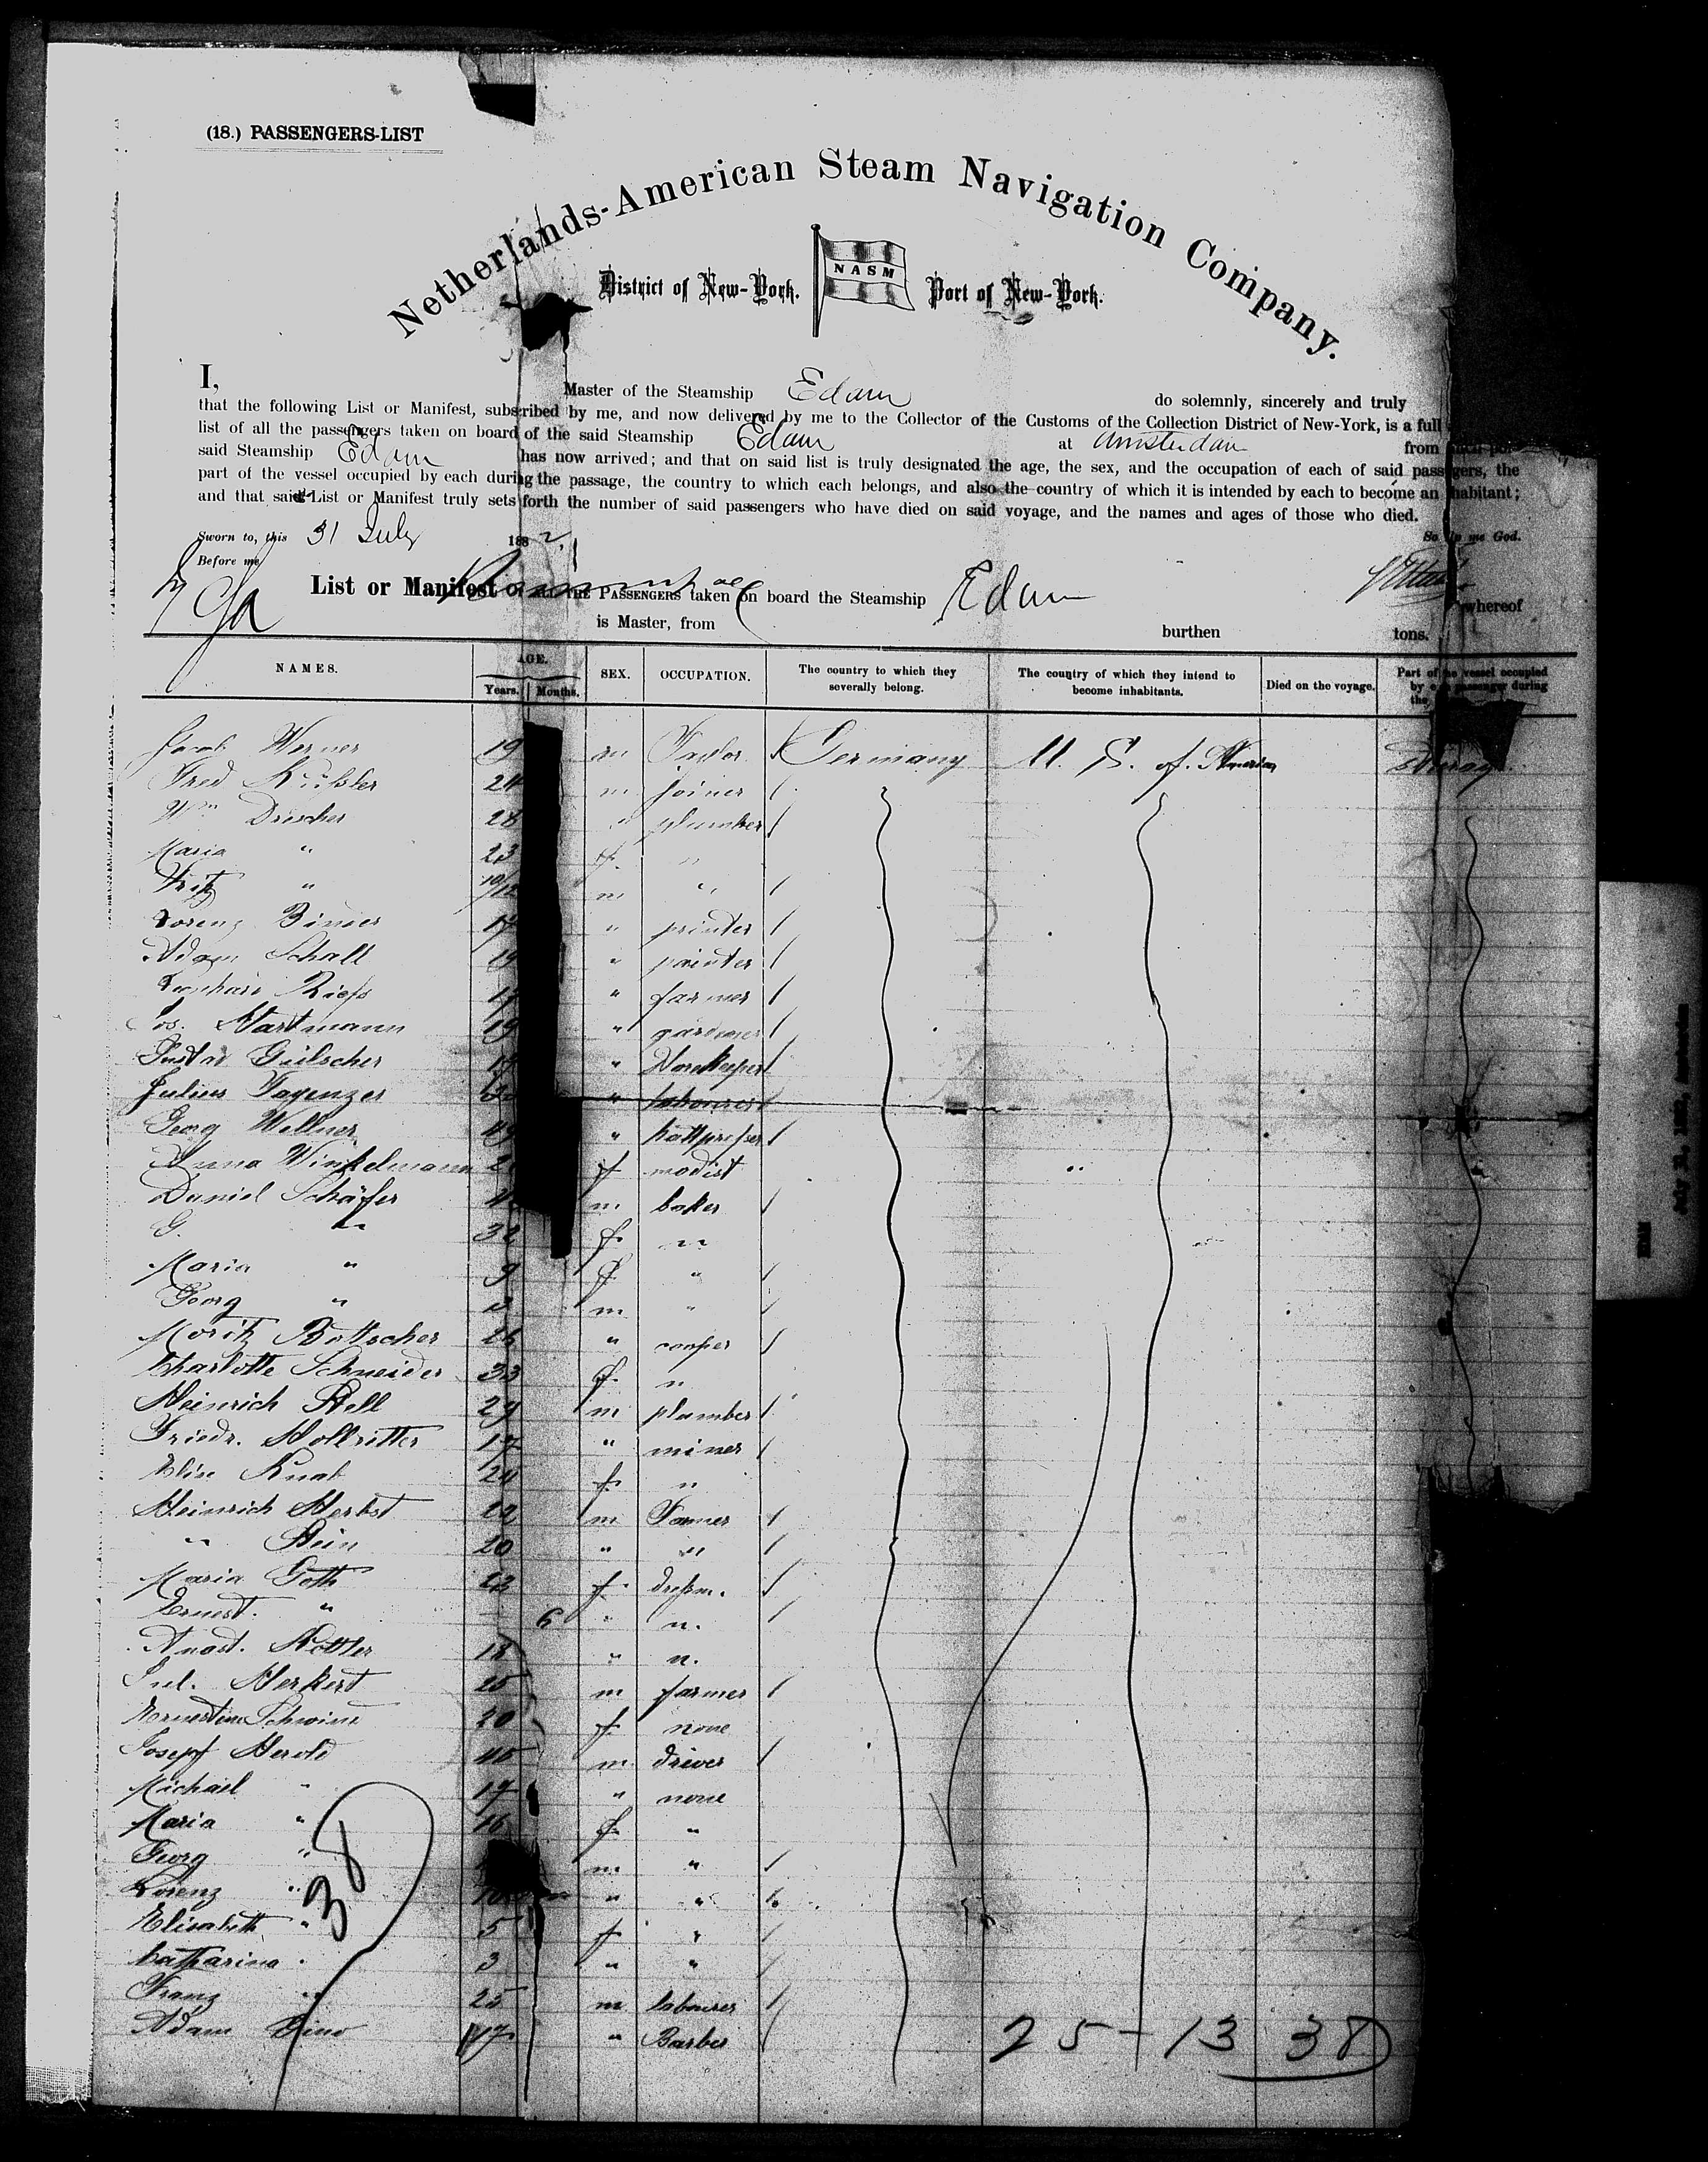 (18.) PASSENGERS-LIST
Netherlands-American Steam Navigation Company.
District of New-York. NASM Port of New-York.
I, Master of the Steamship Edam do solemnly, sincerely and truly
that the following List or Manifest, subscribed by me, and now delivered by me to the Collector of the Customs of the Collection District of New-York, is a full
list of all the passengers taken on board of the said Steamship Edam at Amsterdam from
said Steamship Edam has now arrived; and that on said list is truly designated the age, the sex, and the occupation of each of said passengers, the
part of the vessel occupied by each during the passage, the country to which each belongs, and also the country of which it is intended by each to become an habitant;
and that said List or Manifest truly sets forth the number of said passengers who have died on said voyage, and the names and ages of those who died.
Sworn to, this 31 July 1882, So me God.
Before me
List or Manifest THE PASSENGERS taken on board the Steamship Edam whereof
is Master, from burthen tons.
NAMES. AGE. Years. Months. SEX. OCCUPATION. The country to which they severally belong. The country of which they intend to become inhabitants. Died on the voyage. Part of the vessel occupied by passenger during the
Jacob Werner 19 m Taylor Germany U. S. of America
Fred 24 m joiner
Wm Drescher 28 " plumber
Maria " 23 f "
Fritz " 10/12 m "
Lorenz 17 " printer
Adam Schall 19 " painter
" farmer
Jos. Hartmann 19 " gardener
Gustav Gülscher " Storekeeper
Julius Fagenzer " labourer
Georg Wellner "
Anna Winkelmann f modist
Daniel Schäfer m baker
G. " 32 f "
Maria " 9 f "
Georg " 3 m "
Moritz Bottscher 26 " cooper
Charlotte Schneider 33 f "
Heinrich Stell 29 m plumber
Friedr. Hollritter 17 " miner
Elise Knab 24 f "
Heinrich Herbst 22 m Farmer
" Stein 20 " "
Maria Goth 23 f dressm.
Ernest. " 6 " "
Anast. Kottler 18 " "
Jul. Herkert 25 m farmer
Ernestine Schwind 20 f none
Josepf Herold 45 m driver
Michael " 17 " none
Maria " 16 f "
Georg " m "
Lorenz " 10 " "
Elisabeth " 5 f "
Catharina " 3 " "
Franz " 25 m labourer
Adam 17 " Barber
38
25 - 13 38
July 31, 1882, Amsterdam
EDAM